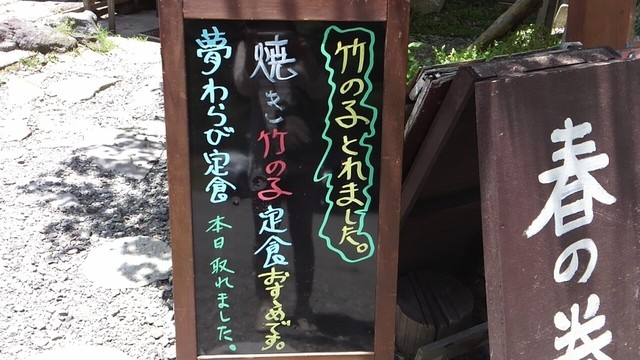 竹の子とれました。
焼き竹の子定食おすすめです。
夢わらび定食 本日取れました。
春の